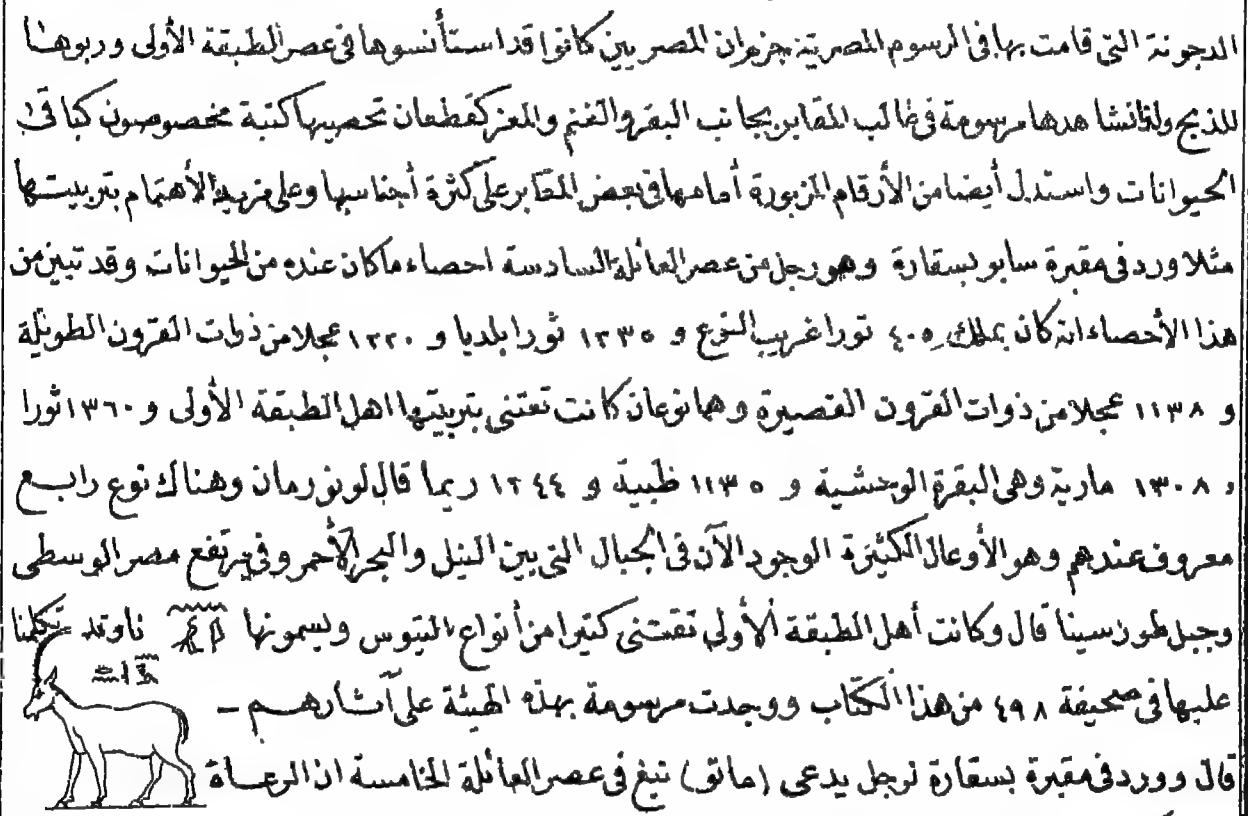 الدجونة التى قامت بها فى الرسوم المصرية جزم ان المصريين كانوا قد استأنسوها فى عصر الطبقة الأولى وربوها
للذبح ولذا نشاهدها مرسومة فى غالب المقابر بجانب البقر والغنم والمعز كقطعان تحصيها كتبة مخصوصون كباقى
الحيوانات واستدل أيضا من الأرقام المزبورة أمامها فى بعض المقابر على كثرة أجناسها وعلى مزيد الأهتمام بتربيتها
مثلا ورد فى مقبرة سابو بسقارة وهو رجل من عصر العائلة السادسة احصاء ما كان عنده من الحيوانات وقد تبين من
هذا الأحصاء انه كان يملك ٤٠٥ ثورا غريب النوع و ١٢٣٥ ثورا بلديا و ١٢٢٠ عجلا من ذوات القرون الطويلة
و ١١٣٨ عجلا من ذوات القرون القصيرة وهما نوعان كانت تعتنى بتربيتها اهل الطبقة الأولى و ١٣٦٠ ثورا
و ١٣٠٨ مارية وهى البقرة الوحشية و ١١٣٥ ظبية و ١٢٤٤ ريما قال لونورمان وهناك نوع رابع
معروف عندهم وهو الأوعال الكثيرة الوجود الآن فى الجبال التى بين النيل والبحر الأحمر وفى مرتفع مصر الوسطى
وجبل طور سينا قال وكانت أهل الطبقة الأولى تقتنى كثيرا من أنواع التيوس ويسمونها ناو وقد تكلمنا
عليها فى صحيفة ٤٩٨ من هذا الكتاب ووجدت مرسومة بهذه الهيئة على آثارهم –
قال وورد فى مقبرة بسقارة لرجل يدعى (مانق) نبغ فى عصر العائلة الخامسة ان الرعاة